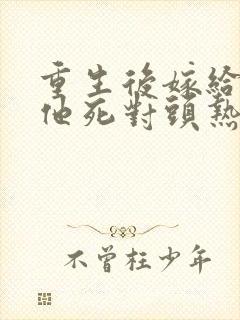 重生後嫁給
他死對頭熱
不曾枉少年